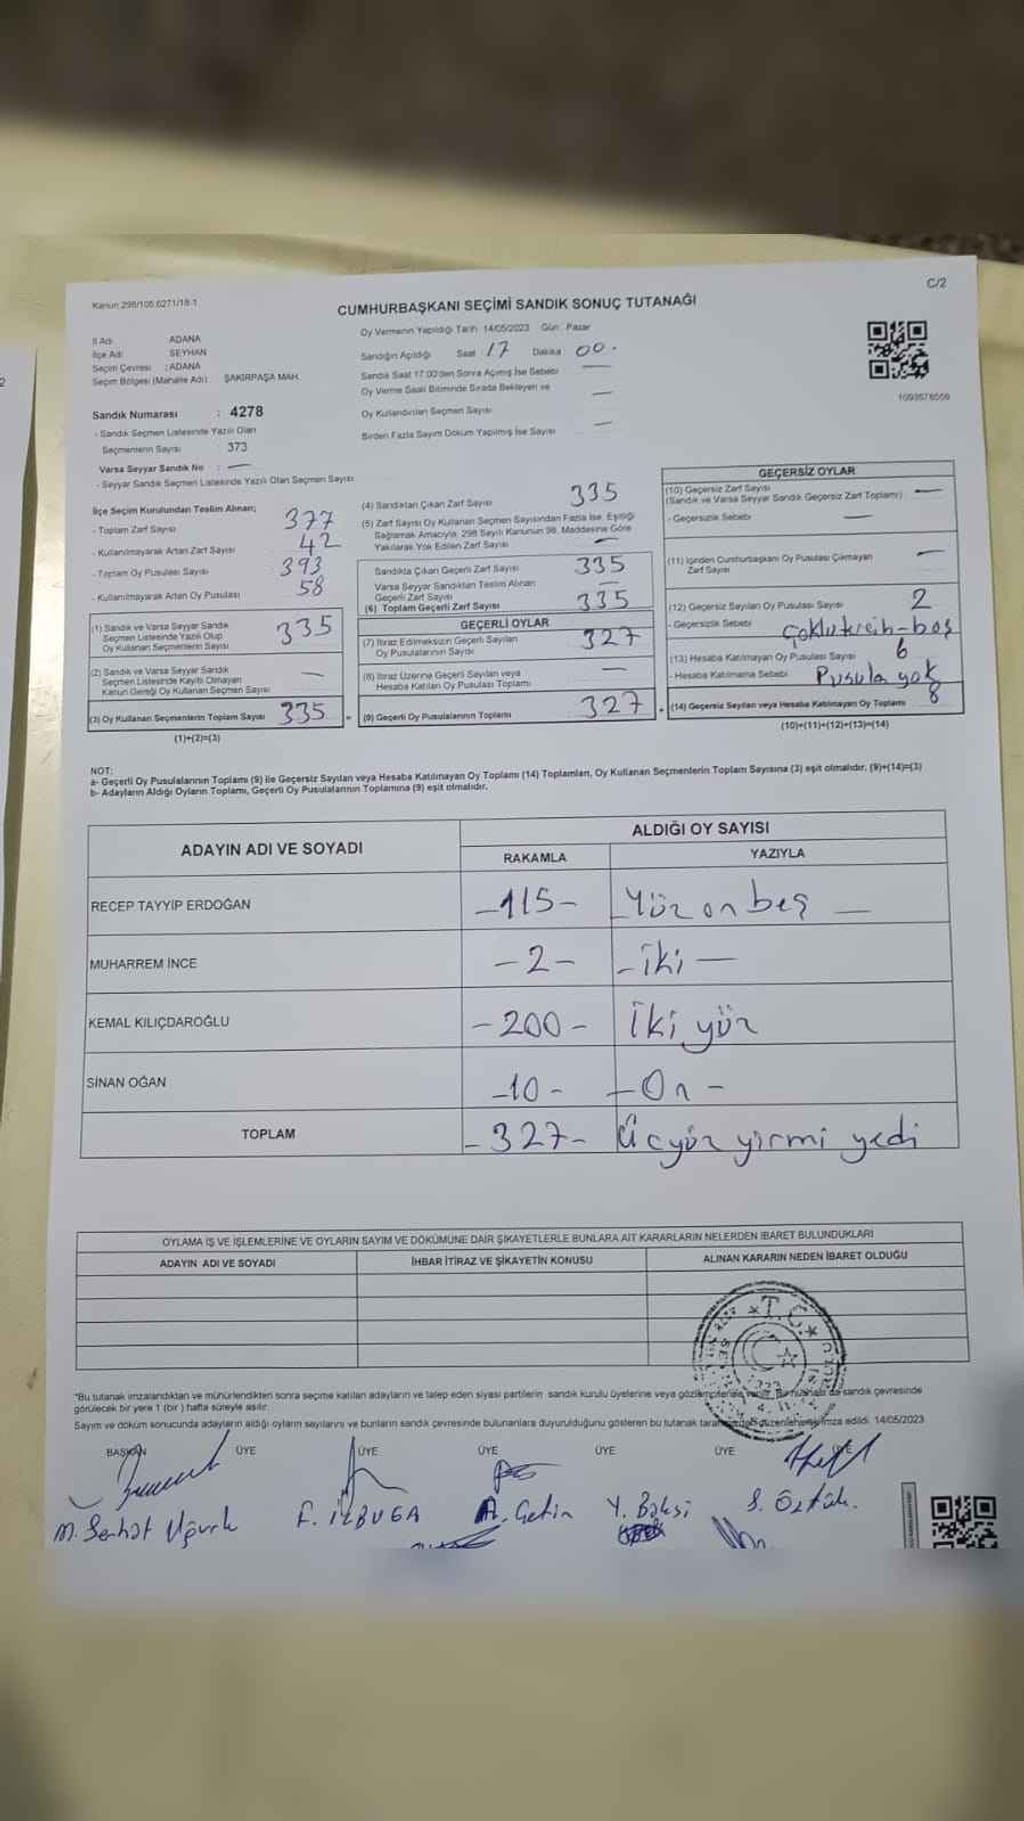 C/2
Kanun:298/105,6271/18-1
CUMHURBAŞKANI SEÇİMİ SANDIK SONUÇ TUTANAĞI
Oy Vermenin Yapıldığı Tarih 14/05/2023 Gün: Pazar
İl Adı ADANA
İlçe Adı SEYHAN
Seçim Çevresi :ADANA
Seçim Bölgesi (Mahalle Adı): ŞAKİRPAŞA MAH.
Sandığın Açıldığı Saat :17 Dakika 00.
Sandık Saat 17:00'den Sonra Açılmış İse Sebebi —
Oy Verme Saati Bitiminde Sırada Bekleyen ve
Oy Kullandırılan Seçmen Sayısı —
Birden Fazla Sayım Döküm Yapılmış İse Sayısı —
Sandık Numarası : 4278
- Sandık Seçmen Listesinde Yazılı Olan
Seçmenlerin Sayısı 373
Varsa Seyyar Sandık No : —
- Seyyar Sandık Seçmen Listesinde Yazılı Olan Seçmen Sayısı
İlçe Seçim Kurulundan Teslim Alınan;
- Toplam Zarf Sayısı 377
- Kullanılmayarak Artan Zarf Sayısı 42
- Toplam Oy Pusulası Sayısı 393
- Kullanılmayarak Artan Oy Pusulası 58
(1) Sandık ve Varsa Seyyar Sandık
Seçmen Listesinde Yazılı Olup
Oy Kullanan Seçmenlerin Sayısı 335
(2) Sandık ve Varsa Seyyar Sandık
Seçmen Listesinde Kayıtlı Olmayan
Kanun Gereği Oy Kullanan Seçmen Sayısı —
(3) Oy Kullanan Seçmenlerin Toplam Sayısı 335
(1)+(2)=(3)
(4) Sandıktan Çıkan Zarf Sayısı 335
(5) Zarf Sayısı Oy Kullanan Seçmen Sayısından Fazla İse, Eşitliği
Sağlamak Amacıyla, 298 Sayılı Kanunun 98. Maddesine Göre
Yakılarak Yok Edilen Zarf Sayısı —
Sandıkta Çıkan Geçerli Zarf Sayısı 335
Varsa Seyyar Sandıktan Teslim Alınan
Geçerli Zarf Sayısı —
(6) Toplam Geçerli Zarf Sayısı 335
GEÇERLİ OYLAR
(7) İtiraz Edilmeksizin Geçerli Sayılan
Oy Pusulalarının Sayısı 327
(8) İtiraz Üzerine Geçerli Sayılan veya
Hesaba Katılan Oy Pusulası Toplamı —
(9) Geçerli Oy Pusulalarının Toplamı 327
1093678559
GEÇERSİZ OYLAR
(10) Geçersiz Zarf Sayısı
(Sandık ve Varsa Seyyar Sandık Geçersiz Zarf Toplamı) —
- Geçersizlik Sebebi —
(11) İçinden Cumhurbaşkanı Oy Pusulası Çıkmayan
Zarf Sayısı —
(12) Geçersiz Sayılan Oy Pusulası Sayısı 2
- Geçersizlik Sebebi çoklutercih-boş
(13) Hesaba Katılmayan Oy Pusulası Sayısı 6
- Hesaba Katılmama Sebebi Pusula yok
(14) Geçersiz Sayılan veya Hesaba Katılmayan Oy Toplamı 8
(10)+(11)+(12)+(13)=(14)
NOT:
a- Geçerli Oy Pusulalarının Toplamı (9) ile Geçersiz Sayılan veya Hesaba Katılmayan Oy Toplamı (14) Toplamları, Oy Kullanan Seçmenlerin Toplam Sayısına (3) eşit olmalıdır. (9)+(14)=(3)
b- Adayların Aldığı Oyların Toplamı, Geçerli Oy Pusulalarının Toplamına (9) eşit olmalıdır.
ADAYIN ADI VE SOYADI
ALDIĞI OY SAYISI
RAKAMLA YAZIYLA
RECEP TAYYİP ERDOĞAN -115- Yüz on beş —
MUHARREM İNCE -2- - iki —
KEMAL KILIÇDAROĞLU -200- İki yüz
SİNAN OĞAN -10- -On-
TOPLAM -327- Üç yüz yirmi yedi
OYLAMA İŞ VE İŞLEMLERİNE VE OYLARIN SAYIM VE DÖKÜMÜNE DAİR ŞİKAYETLERLE BUNLARA AİT KARARLARIN NELERDEN İBARET BULUNDUKLARI
ADAYIN ADI VE SOYADI İHBAR İTİRAZ VE ŞİKAYETİN KONUSU ALINAN KARARIN NEDEN İBARET OLDUĞU
T.C.
*Bu tutanak imzalandıktan ve mühürlendikten sonra seçime katılan adayların ve talep eden siyasi partilerin sandık kurulu üyelerine veya gözlemcilerine verilir. Bir nüshası da sandık çevresinde
görülecek bir yere 1 (bir) hafta süreyle asılır.
Sayım ve döküm sonucunda adayların aldığı oyların sayılarını ve bunların sandık çevresinde bulunanlara duyurulduğunu gösteren bu tutanak tarafımızdan düzenlenerek imza edildi. 14/05/2023
BAŞKAN ÜYE ÜYE ÜYE ÜYE ÜYE ÜYE
M. Serhat F. İLBUGA A. Çetin Y. Beksi S. Öztürk.